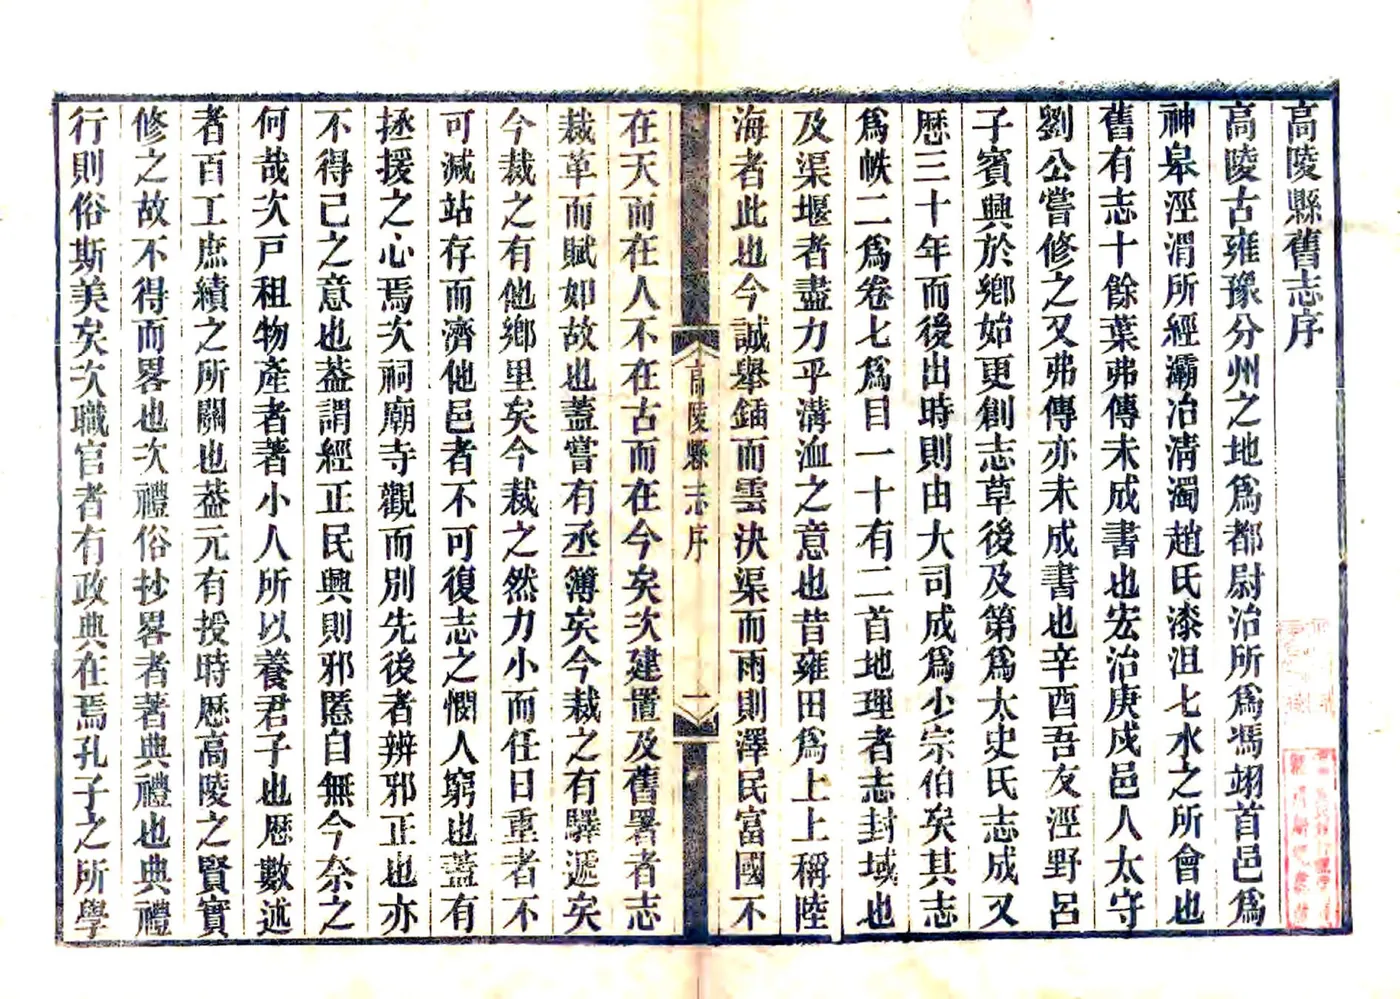 高陵縣舊志序
高陵古雍豫分州之地爲都尉治所爲馮翊首邑爲
神臯涇渭所經灞冶淸濁趙氏漆沮七水之所會也
舊有志十餘葉弗傳未成書也宏治庚戍邑人太守
劉公嘗修之又弗傳亦未成書也辛酉吾友涇野呂
子賓興於鄉始更創志草後及第爲太史氏志成又
歷三十年而後出時則由大司成爲少宗伯矣其志
爲帙二爲卷七爲目一十有二首地理者志封域也
及渠堰者盡力乎溝洫之意也昔雍田爲上上稱陸
海者此也今誠舉鍤而雲決渠而雨則澤民富國不
高陵縣志序
一
在天而在人不在古而在今矣次建置及舊署者志
裁革而賦如故也蓋嘗有丞簿矣今裁之有驛遞矣
今裁之有他鄉里矣今裁之然力小而任日重者不
可減站存而濟他邑者不可復志之憫人窮也蓋有
拯援之心焉次祠廟寺觀而別先後者辨邪正也亦
不得已之意也葢謂經正民興則邪慝自無今奈之
何哉次戸租物產者著小人所以養君子也歷數述
者百工庶績之所關也葢元有授時歷高陵之賢實
修之故不得而畧也次禮俗抄畧者著典禮也典禮
行則俗斯美矣次職官者有政典在焉孔子之所學